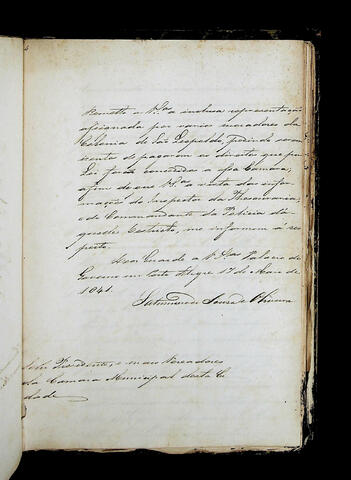 Remetto a V.Sas a inclusa representação
assignada por varios moradores da
Colonia de São Leopoldo, pedindo serem
isentos de pagarem os direitos que por
Lei forão concedidos a essa Camara,
afim de que V.Sas a vista das infor
mações do Inspector da Thesouraria,
e do Commandante da Policia da
quelle Destricto, me informem á res
peito.
Deos Guarde a V.Sas Palacio do
Governo em Porto Alegre 17 de Maio de
1841.
Saturnino de Souza e Oliveira
Snrs. Presidente, e mais Vereadores
da Camara Municipal desta Ci
dade